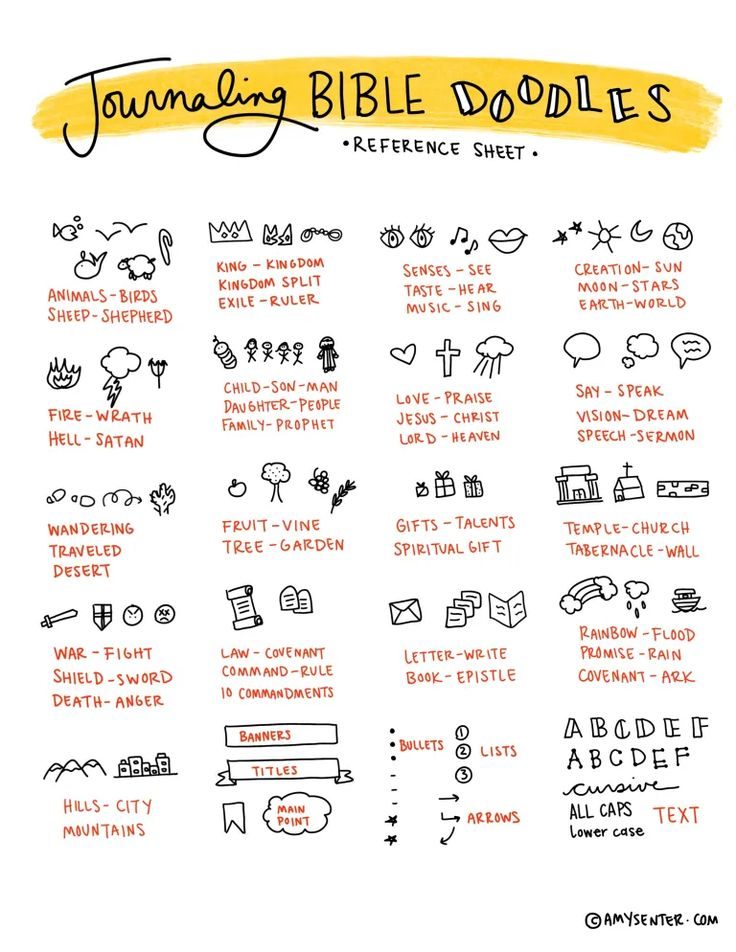 Journaling BIBLE DOODLES
•REFERENCE SHEET•
ANIMALS-BIRDS
SHEEP-SHEPHERD
KING - KINGDOM
KINGDOM SPLIT
EXILE-RULER
SENSES - SEE
TASTE-HEAR
MUSIC - SING
CREATION-SUN
MOON-STARS
EARTH-WORLD
FIRE-WRATH
HELL-SATAN
CHILD-SON-MAN
DAUGHTER-PEOPLE
FAMILY-PROPHET
LOVE-PRAISE
JESUS - CHRIST
LORD-HEAVEN
SAY - SPEAK
VISION-DREAM
SPEECH-SERMON
WANDERING
TRAVELED
DESERT
FRUIT-VINE
TREE-GARDEN
GIFTS-TALENTS
SPIRITUAL GIFT
TEMPLE-CHURCH
TABERNACLE-WALL
WAR - FIGHT
SHIELD-SWORD
DEATH-ANGER
LAW - COVENANT
COMMAND-RULE
10 COMMANDMENTS
LETTER-WRITE
BOOK - EPISTLE
RAINBOW-FLOOD
PROMISE-RAIN
COVENANT-ARK
HILLS-CITY
MOUNTAINS
BANNERS
TITLES
MAIN
POINT
BULLETS
1
2
3
LISTS
ARROWS
ABCDEF
ABCDEF
cursive
ALL CAPS
lower case
TEXT
©AMYSENTER.COM